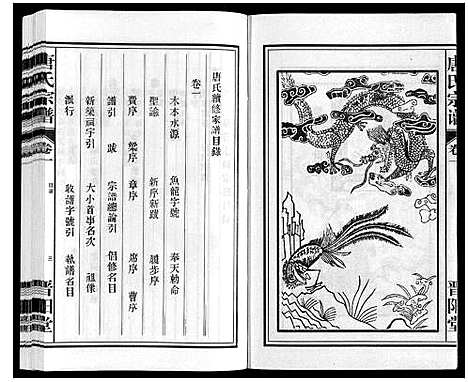 唐氏宗譜
卷一
晋陽堂
唐氏續修家譜目錄
卷一
木本水源 魚龍字號 奉天勅命
聖諭 新序新跋 履步序
費序 梁序 章序 席序 曹序
譜引 跋 宗譜總論引 倡修名目
新築祠宇引 大小首事名次 祖像
派行 收譜字號引 執譜名目
唐氏宗譜
卷一
目錄
三
晋陽堂